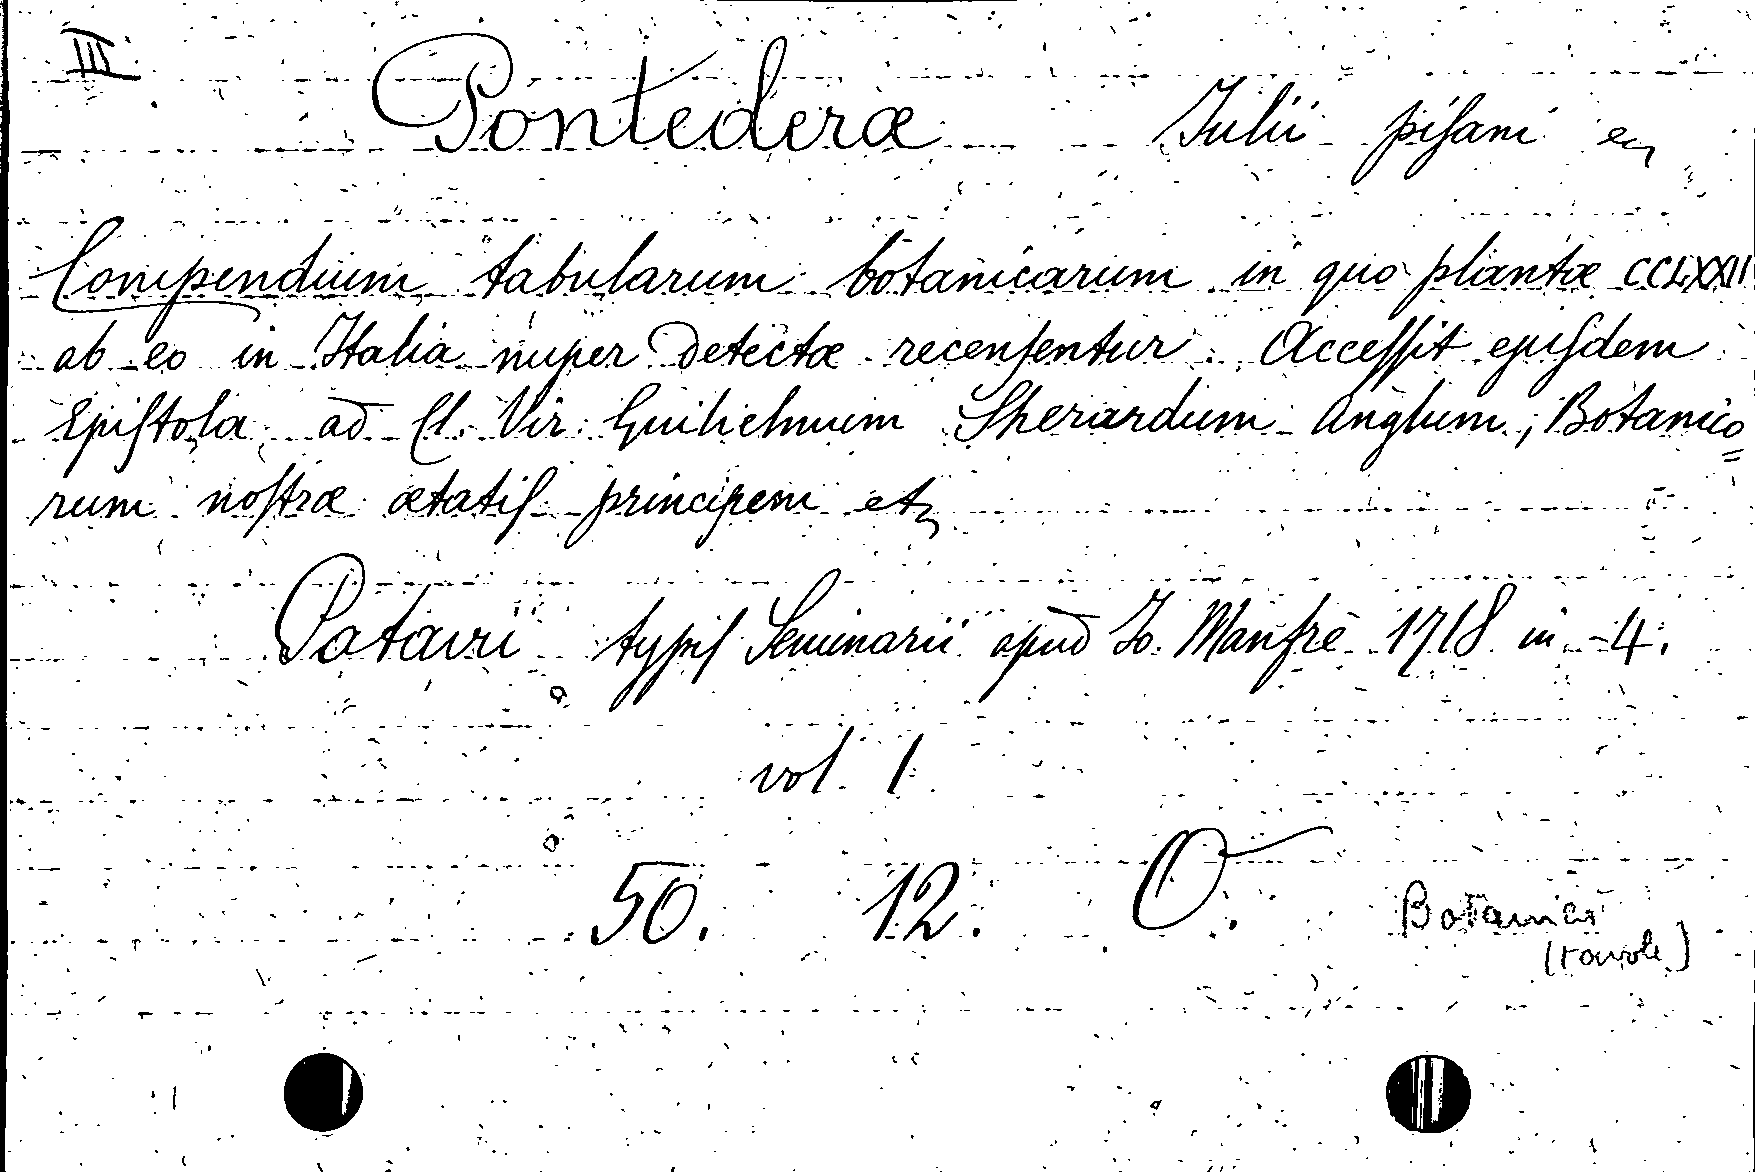 III
Pontederæ Julii piſani eq
Compendium tabularum botanicarum in quo plantæ CCLXXII
ab eo in Italia nuper detectæ recenſentur. Acceſſit ejuſdem
Epiſtola ad Cl. Vir. Guilielmum Sherardum Anglum, Botanico=
rum noſtræ ætatiſ principem etc
Patavii typiſ Seminarii apud Jo. Manfrè 1718 in-4.
vol. 1.
50. 12. O.
Botanica
(tavole)